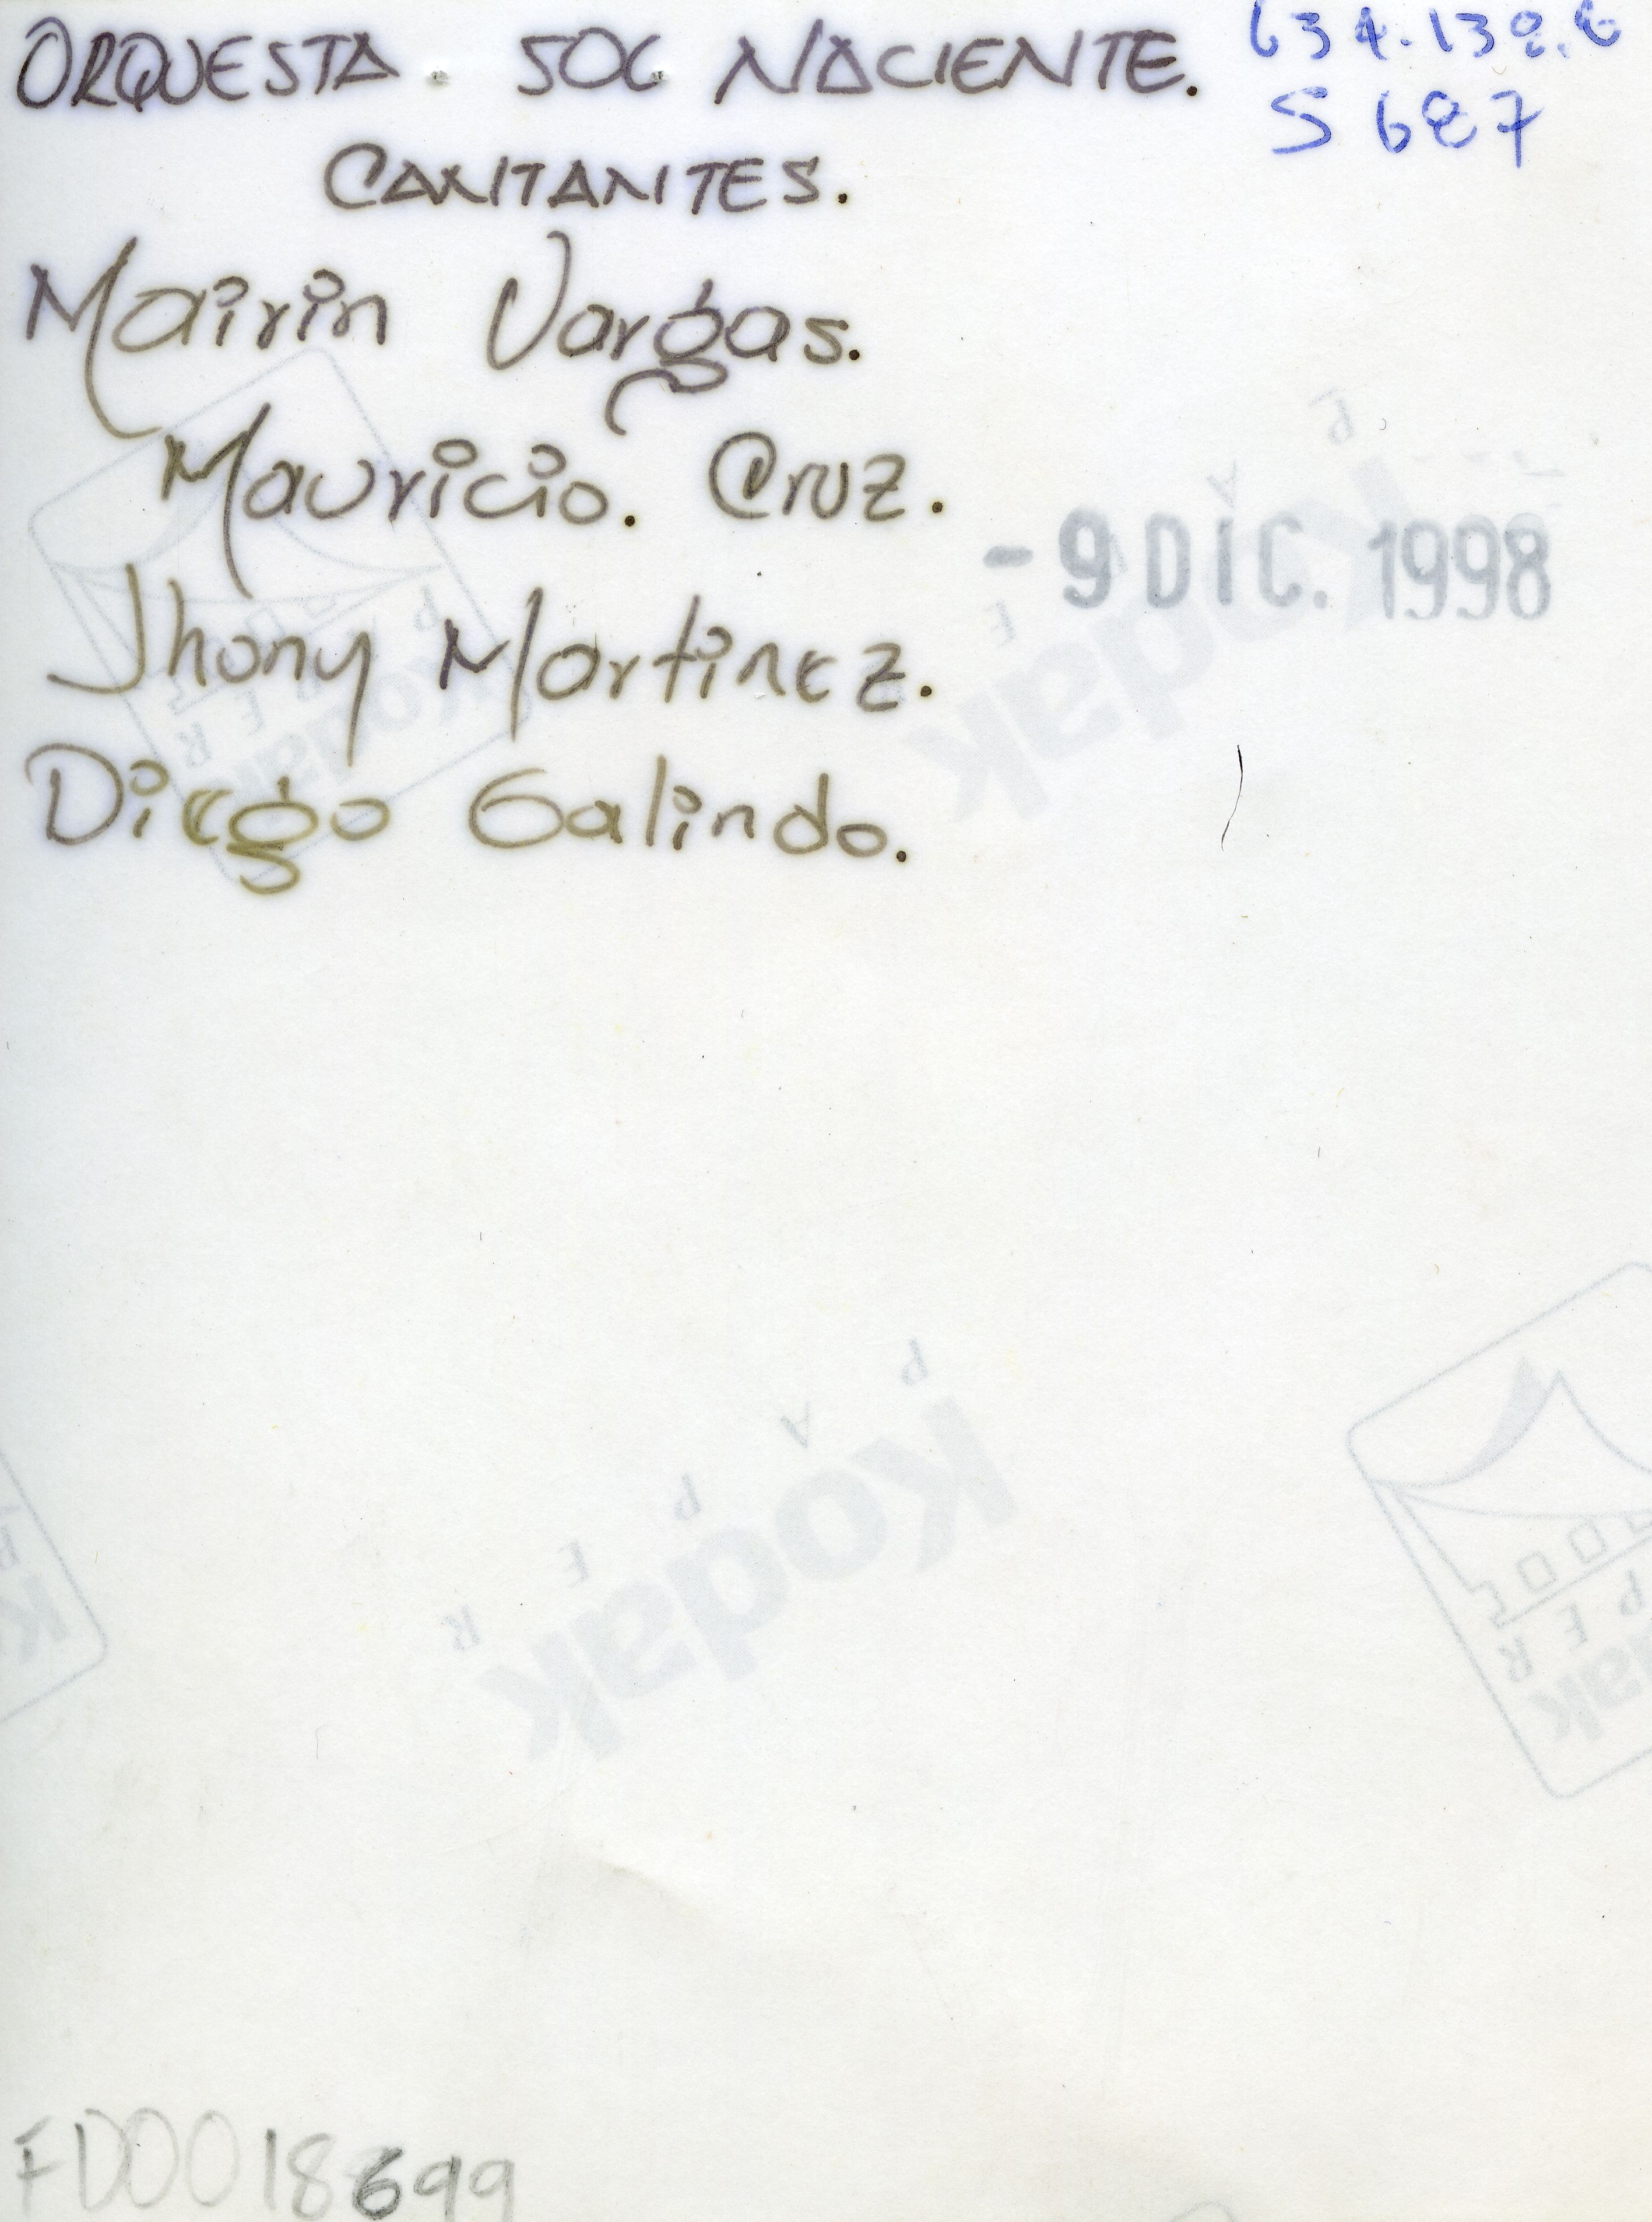 ORQUESTA. SOL NACIENTE.
S 687
CANTANTES.
Mairin Vargas.
Mauricio. Cruz.
- 9 DIC. 1998
Jhony Martinez.
Diego Galindo.
Kodak
PAPER
Kodak
PAPER
Kodak
FD0018699